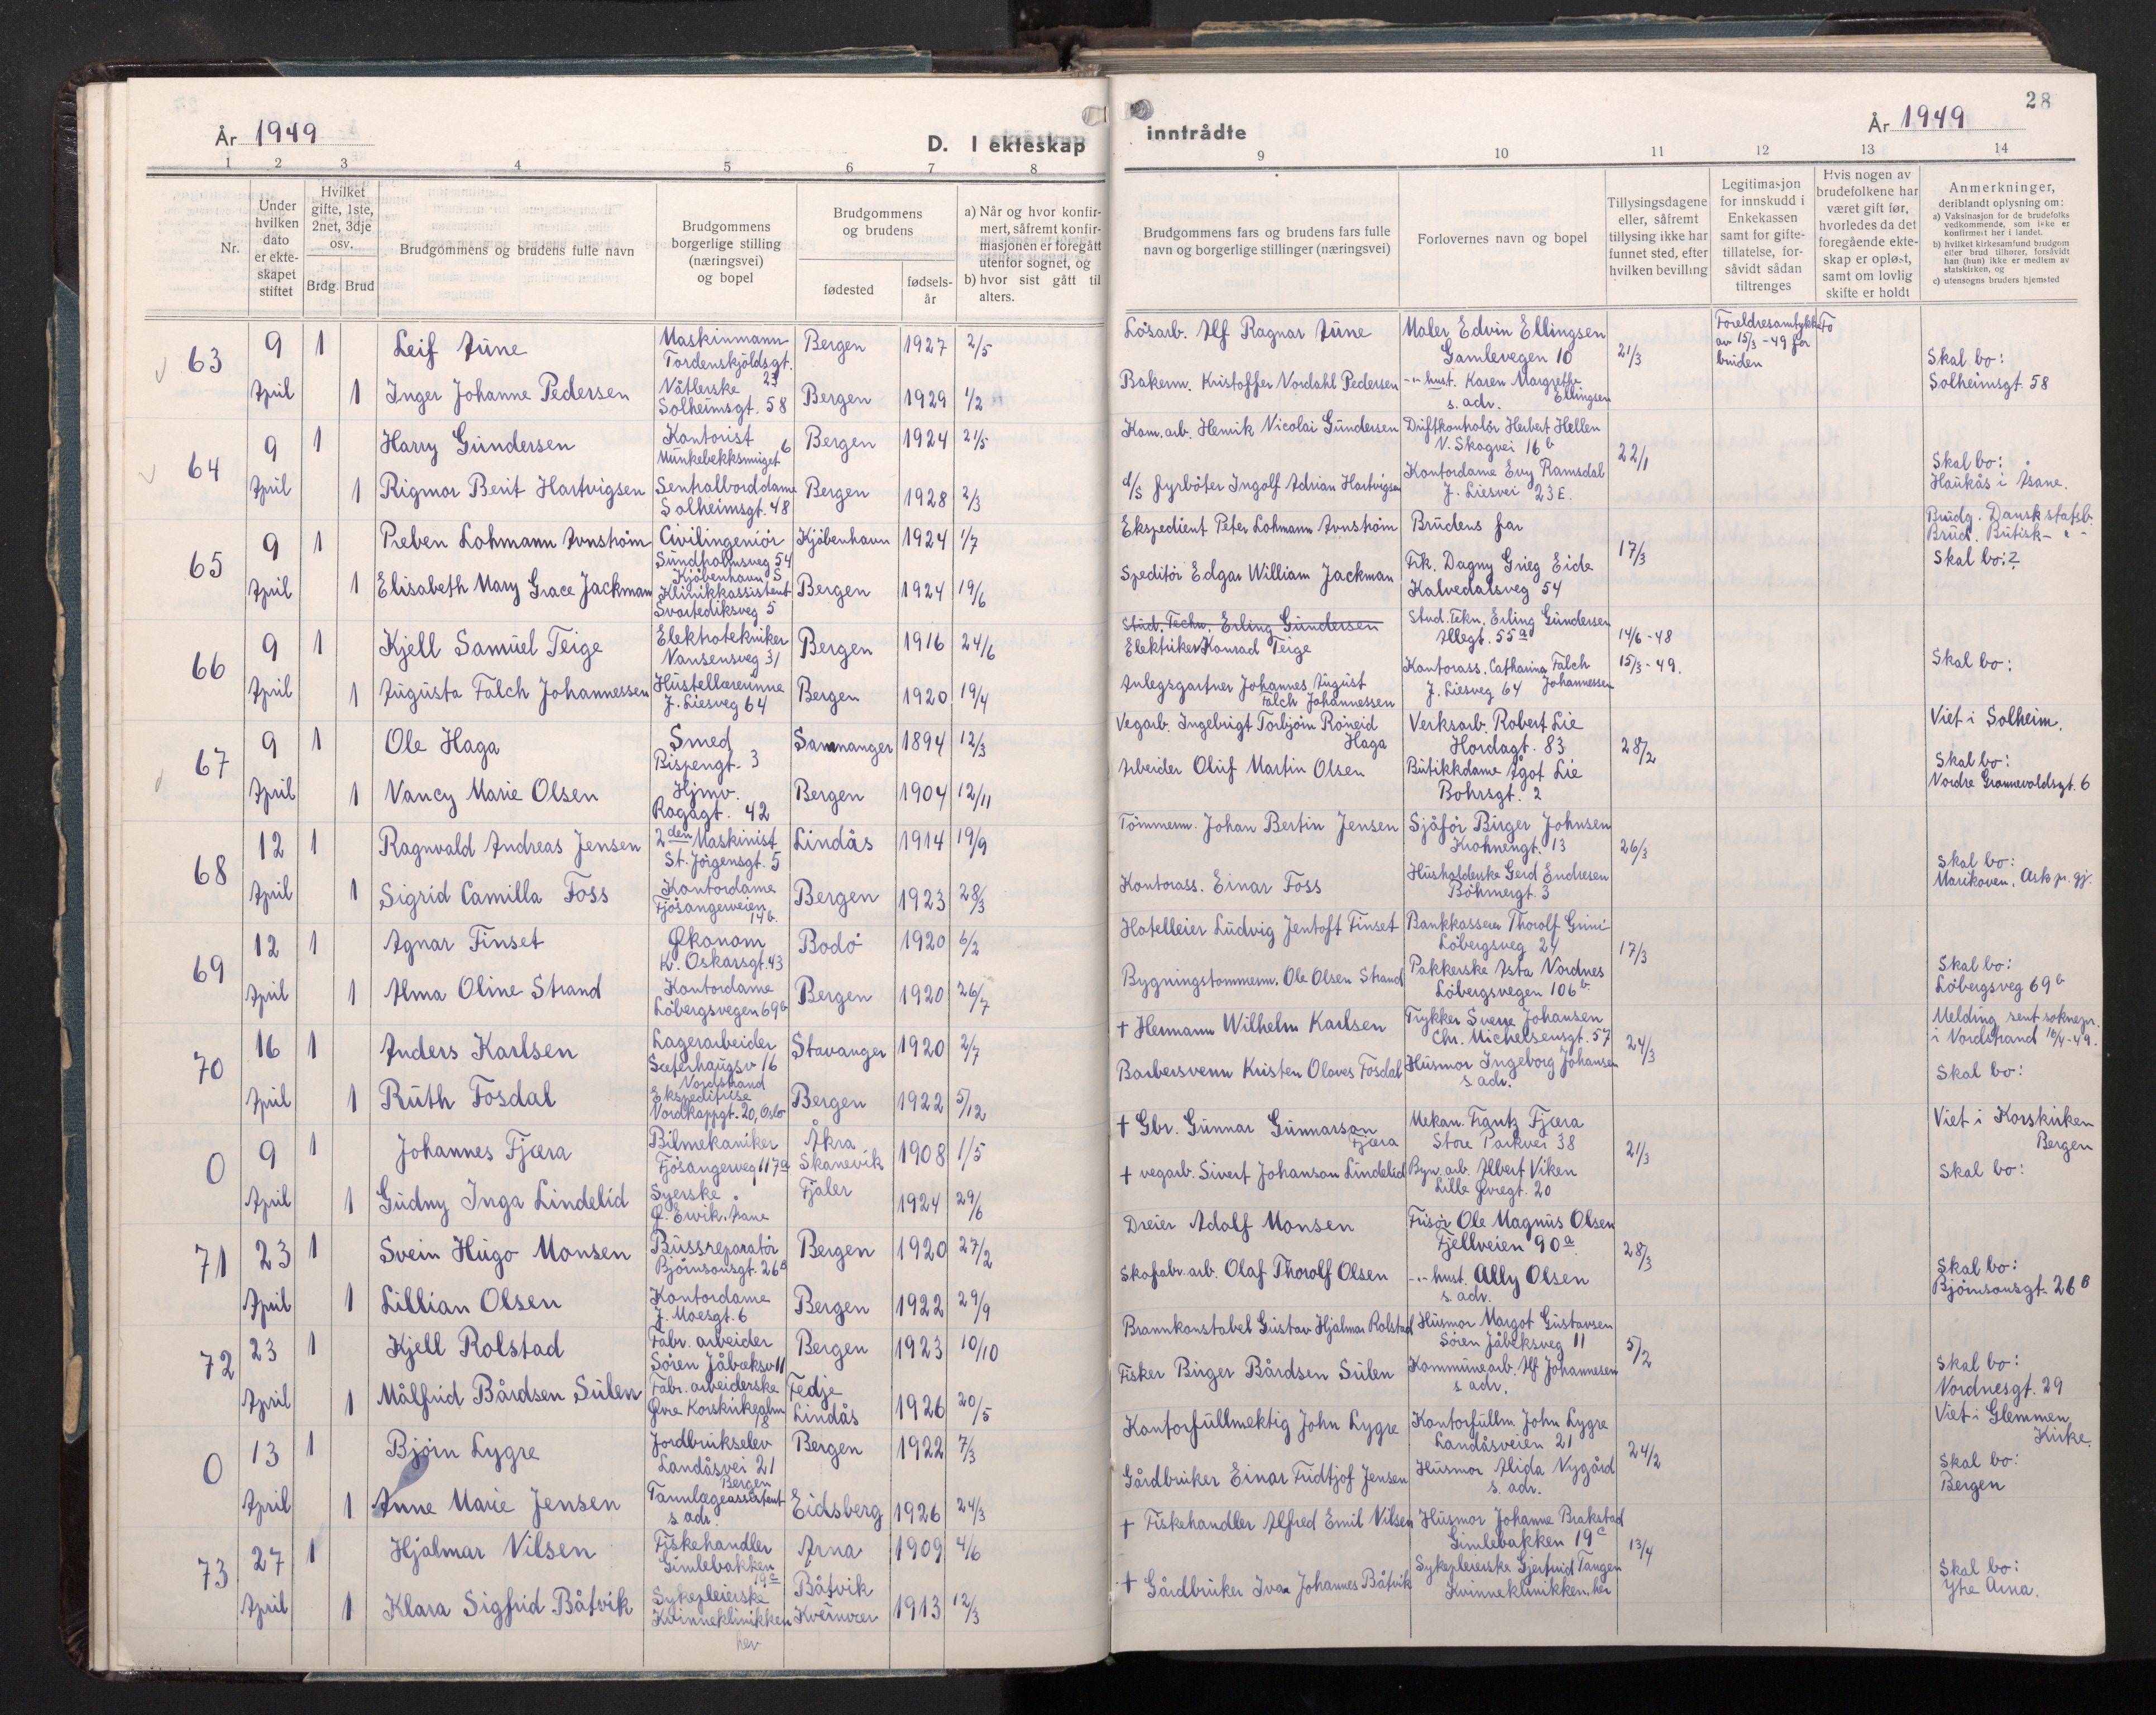 År 1949
D. I ekteskap
1 2 3 4 5 6 7 8
Nr.
Under hvilken dato er ekte-skapet stiftet
Hvilket gifte, 1ste, 2net, 3dje osv.
Brdg. Brud
Brudgommens og brudens fulle navn
Brudgommens borgerlige stilling (næringsvei) og bopel
Brudgommens og brudens
fødested
fødsels-år
a) Når og hvor konfir-
mert, såfremt konfir-
masjonen er foregått
utenfor sognet, og
b) hvor sist gått til
alters.
inntrådte
28
År 1949
9 10 11 12 13 14
Brudgommens fars og brudens fars fulle
navn og borgerlige stillinger (næringsvei)
Forlovernes navn og bopel
Tillysingsdagene
eller, såfremt
tillysing ikke har
funnet sted, efter
hvilken bevilling
Legitimasjon
for innskudd i
Enkekassen
samt for gifte-
tillatelse, for-
såvidt sådan
tiltrenges
Hvis nogen av
brudefolkene har
været gift før,
hvorledes da det
foregående ekte-
skap er opløst,
samt om lovlig
skifte er holdt
Anmerkninger,
deriblandt oplysning om:
a) Vaksinasjon for de brudefolks
vedkommende, som ikke er
konfirmert her i landet.
b) hvilket kirkesamfund brudgom
eller brud tilhører, forsåvidt
han (hun) ikke er medlem av
statskirken, og
c) utensogns bruders hjemsted
63
9 1 Leif Aune Maskinmann Tordenskjöldsgt. 23 Bergen 1927 2/5
April 1 Inger Johanne Pedersen Nåtlerske Solheimsgt. 58 Bergen 1929 1/2
Lösarb. Alf Ragnar Aune
Bakerm. Kristoffer Nordahl Pedersen
Maler Edvin Ellingsen
Gamlevegen 10
-"- hust. Karen Margrethe Ellingsen
s. adr.
21/3
Foreldresamtykke
av 15/3 - 49 for
bruden
Skal bo:
Solheimsgt. 58
64
9 1 Harry Gundersen Kontorist Munkebekksmuget 6 Bergen 1924 21/5
April 1 Rigmor Berit Hartvigsen Sentralborddame Solheimsgt. 48 Bergen 1928 2/3
Kom. arb. Henrik Nicolai Gundersen
d/s fyrböter Ingolf Adrian Hartvigsen
Driftkontrolör Herbert Hellen
N. Skogvei 16 b
Kontordame Evy Ramsdal
J. Liesvei 23 E.
22/1
Skal bo:
Haukås i Åsane.
65
9 1 Preben Lohmann Arnström Civilingeniör Sundholmsveg 54 Kjöbenhavn S Kjöbenhavn 1924 1/7
April 1 Elisabeth Mary Grace Jackman Klinikkassistent Svartediksveg 5 Bergen 1924 19/6
Ekspedient Peter Lohmann Arnström
Speditör Edgar William Jackman
Brudens far
Frk. Dagny Grieg Eide
Kalvedalsveg 54
17/3
Brudg. Dansk statsb.
Brud. Britisk - " -
Skal bo: ?
66
9 1 Kjell Samuel Teige Elektrotekniker Nansensveg 31 Bergen 1916 24/6
April 1 Augusta Falch Johannessen Hustellærerinne J. Liesveg 64 Bergen 1920 19/4
Stud. Techn. Erling Gundersen
Elektriker Konrad Teige
Anlegsgartner Johannes August
Falch Johannessen
Stud. Tekn. Erling Gundersen
Allegt. 55 a
Kontorass. Catharina Falch Johannessen
J. Liesveg 64
14/6 - 48
15/3 - 49.
Skal bo:
67
9 1 Ole Haga Smed Bispengt. 3 Samnanger 1894 12/3
April 1 Nancy Marie Olsen Hjmv. Rogagt. 42 Bergen 1904 12/11
Vegarb. Ingebrigt Torbjörn Röneid
Haga
Arbeider Oluf Martin Olsen
Verksarb. Robert Lie
Hordagt. 83
Butikkdame Ågot Lie
Bohrsgt. 2
28/2
Viet i Solheim.
Skal bo:
Nordre 6
68
12 1 Ragnvald Andreas Jensen 2den Maskinist St. Jörgensgt. 5 Lindås 1914 19/9
April 1 Sigrid Camilla Foss Kontordame Fjösangerveien 14 b. Bergen 1923 28/3
Tömmerm. Johan Bertin Jensen
Kontorass. Einar Foss
Sjåför Birger Johnsen
Krohnengt. 13
Husholderske Gerd Endresen
Böhmergt. 3
26/3
Skal bo:
Marikoven, Ask pr. gj.
69
12 1 Agnar Finset Økonom K. Oskarsgt. 43 Bodö 1920 6/2
April 1 Alma Oline Strand Kontordame Löbergsvegen 69 b Bergen 1920 26/7
Hotelleier Ludvig Jentoft Finset
Bygningstömmerm. Ole Olsen Strand
Bankkasserer Thorolf
Löbergsveg 24
Pakkerske Asta Nordnes
Löbergsvegen 106 b.
17/3
Skal bo:
Löbergsveg 69 b
70
16 1 Anders Karlsen Lagerarbeider Sæterhaugsv 16 Nordstrand Stavanger 1920 2/7
April 1 Ruth Fosdal Ekspeditrise Nordkappgt. 20, Oslo Bergen 1922 5/12
† Hermann Wilhelm Karlsen
Barbersvenn Kristen Olaves Fosdal
Trykker Sverre Johansen
Chr. Michelsensgt. 57
Husmor Ingeborg Johansen
s. adr.
24/3
Melding sent soknepr.
i Nordstrand 16/4-49.
Skal bo:
0
9 1 Johannes Fjæra Bilmekaniker Fjösangerveg 117 a Åkra Skånevik 1908 1/5
April 1 Gudny Inga Lindelid Syerske Ø. Ervik. Åsane Fjaler 1924 29/6
† Gbr. Gunnar Gunnarson
Fjæra
† vegarb. Sivert Johanson Lindelid
Mekan. Frantz Fjæra
Store Parkvei 38
Byn. arb. Albert Viken
Lille Øvregt. 20
21/3
Viet i Korskirken
Bergen
Skal bo:
71
23 1 Svein Hugo Monsen Bussreparatör Björnsonsgt. 26 a Bergen 1920 27/2
April 1 Lillian Olsen Kontordame J. Moesgt. 6 Bergen 1922 29/9
Dreier Adolf Monsen
Skofabr. arb. Olaf Thorolf Olsen
Frisör Ole Magnus Olsen
Fjellveien 90 a.
-"- hust. Ally Olsen
s. adr.
28/3
Skal bo:
Björnsonsgt. 26 B
72
23 1 Kjell Rolstad Fabr. arbeider Sören Jåbæksv 11 Bergen 1923 10/10
April 1 Målfrid Bårdsen Sulen Fabr. arbeiderske Øvre Korskirkealm 18 Fedje Lindås 1926 20/5
Brannkonstabel Gustav Hjalmar Rolstad
Fisker Birger Bårdsen Sulen
Husmor Margot Gustavsen
Sören Jåbeksveg 11
Kommunearb. Alf Johannesen
s. adr.
5/2
Skal bo:
Nordnesgt. 29
0
13 1 Björn Lygre Jordbrukselev Landåsvei 21 Bergen Bergen 1922 7/3
April 1 Anne Marie Jensen Tannlegeassistent s. adr. Eidsberg 1926 24/3
Kontorfullmektig John Lygre
Gårdbruker Einar Fridtjof Jensen
Kontorfullm. John Lygre
Landåsveien 21
Husmor Alida Nygård
s. adr.
24/2
Viet i Glemmen
Kirke.
Skal bo:
Bergen
73
27 1 Hjalmar Nilsen Fiskehandler Gimlebakken 19 c Arna 1909 4/6
April 1 Klara Sigfrid Båtvik Sykepleierske Kvinneklinikken her Båtvik Kvernvær 1913 12/3
† Fiskehandler Alfred Emil Nilsen
† Gårdbruker Ivar Johannes Båtvik
Husmor Johanne Brakstad
Gimlebakken 19 c
Sykepleierske Gjertrud Tangen
Kvinneklinikken. her
13/4
Skal bo:
Ytre Arna.